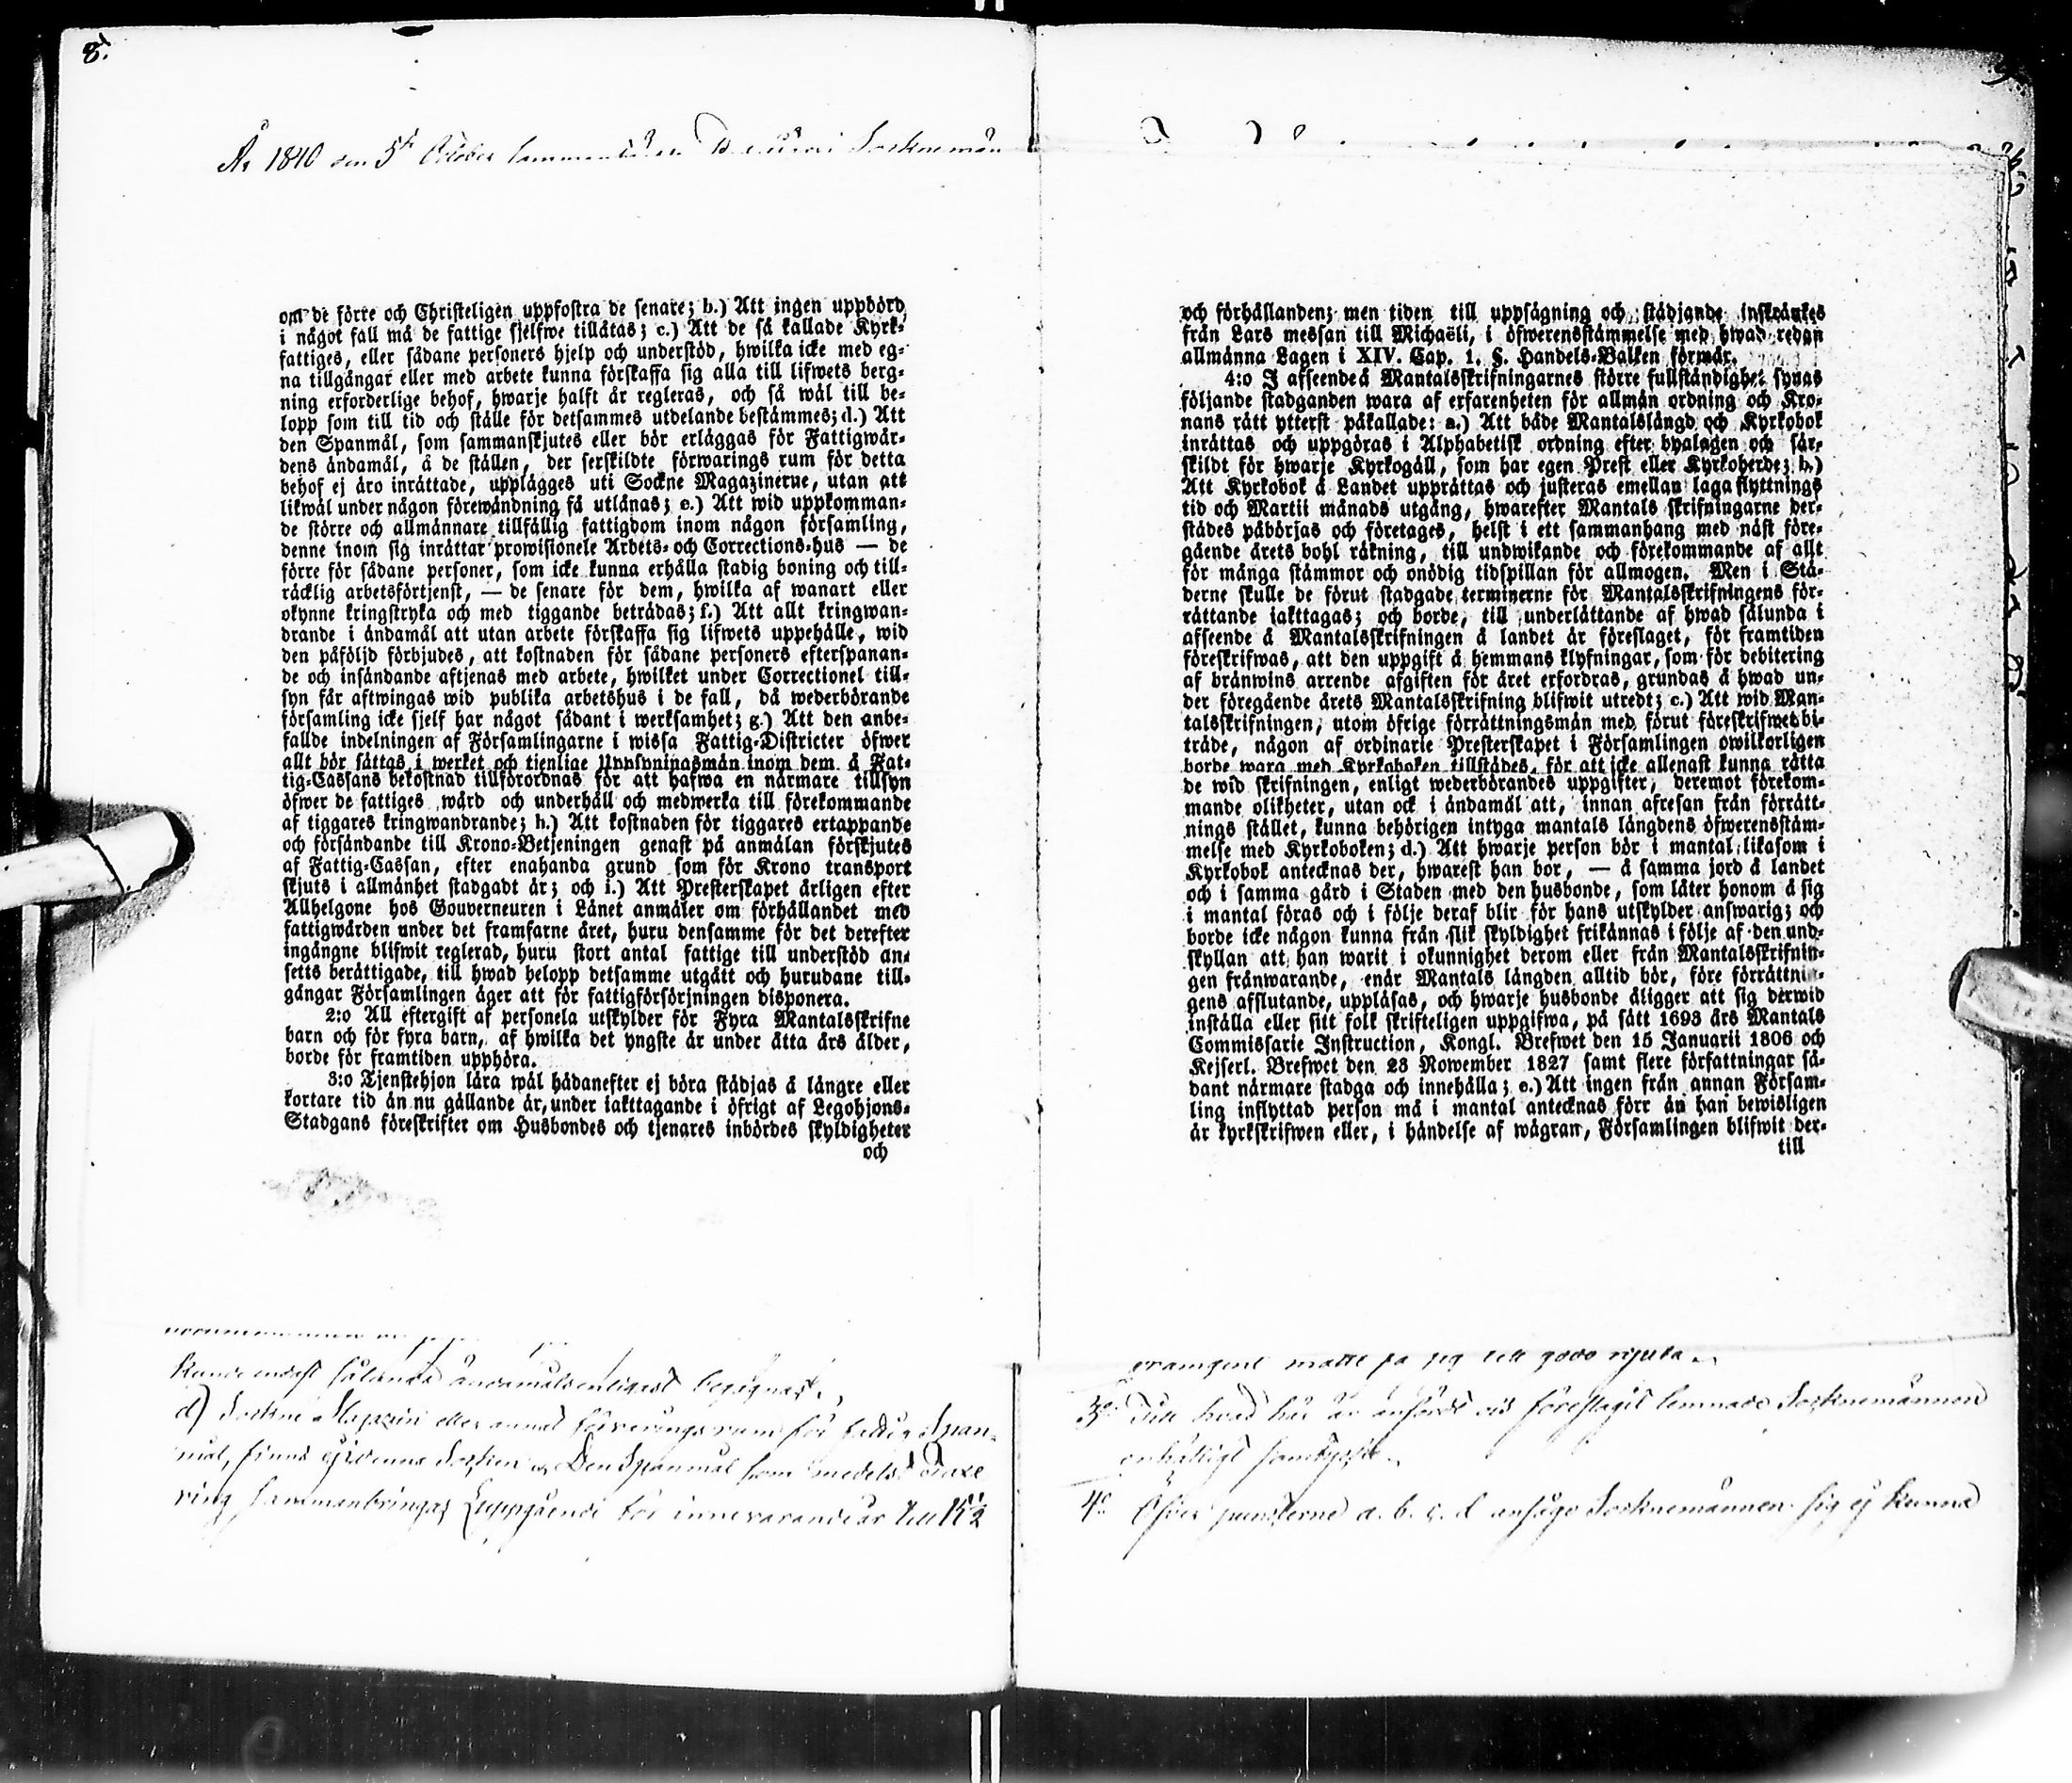 8.
År 1840 den 5te October Socknemän
om de förre och Christeligen uppfostra de senare; b.) Att ingen uppbörd
i något fall må de fattige sjelfwe tillåtas; c.) Att de så kallade Kyrk-
fattiges, eller sådane personers hjelp och understöd, hwilka icke med eg-
na tillgångar eller med arbete kunna förskaffa sig alla till lifwets berg-
ning erforderlige behof, hwarje halft år regleras, och så wäl till be-
lopp som till tid och ställe för detsammes utdelande bestämmes; d.) Att
den Spanmål, som sammanskjutes eller bör erläggas för Fattigwår-
dens ändamål, å de ställen, der serskildte förwarings rum för detta
behof ej äro inrättade, upplägges uti Sockne Magazinerne, utan att
likwäl under någon förewändning få utlånas; e.) Att wid uppkomman-
de större och allmännare tillfällig fattigdom inom någon församling,
denne inom sig inrättar prowisionele Arbets- och Corrections-hus — de
förre för sådane personer, som icke kunna erhålla stadig boning och till-
räcklig arbetsförtjenst, — de senare för dem, hwilka af wanart eller
okynne kringstryka och med tiggande beträdas; f.) Att allt kringwan-
drande i ändamål att utan arbete förskaffa sig lifwets uppehälle, wid
den påföljd förbjudes, att kostnaden för sådane personers efterspanan-
de och insändande aftjenas med arbete, hwilket under Correctionel till-
syn får aftwingas wid publika arbetshus i de fall, då wederbörande
församling icke sjelf har något sådant i werksamhet; g.) Att den anbe-
fallde indelningen af Församlingarne i wissa Fattig-Districter öfwer
allt bör sättas i werket och tjenlige Uppsyningsmän inom dem å Fat-
tig-Cassans bekostnad tillförordnas för att hafwa en närmare tillsyn
öfwer de fattiges wård och underhåll och medwerka till förekommande
af tiggares kringwandrande; h.) Att kostnaden för tiggares ertappande
och försändande till Krono-Betjeningen genast på anmälan förskjutes
af Fattig-Cassan, efter enahanda grund som för Krono transport
skjuts i allmänhet stadgadt är; och i.) Att Presterskapet årligen efter
Allhelgone hos Gouverneuren i Länet anmäler om förhållandet med
fattigwården under det framfarne året, huru densamme för det derefter
ingångne blifwit reglerad, huru stort antal fattige till understöd an-
setts berättigade, till hwad belopp detsamme utgått och hurudane till-
gångar Församlingen äger att för fattigförsörjningen disponera.
2:o All eftergift af personela utskylder för Fyra Mantalsskrifne
barn och för fyra barn, af hwilka det yngste är under åtta års ålder,
borde för framtiden upphöra.
3:o Tjenstehjon lära wäl hädanefter ej böra städjas å längre eller
kortare tid än nu gällande är, under iakttagande i öfrigt af Legohjons-
Stadgans föreskrifter om Husbondes och tjenares inbördes skyldigheter
och
kunde endast sålunda ändamålsenligast begagnas.
d) Sockne Magazin eller annat förvaringsrum för fattig Span-
mål, finns ej i denna Socken Den Spanmål som medelst Taxe
ring sammanbringas uppgående för innevarande år till 15 1/2
och förhållanden; men tiden till uppsägning och städjande inskränkes
från Lars messan till Michaëli, i öfwerensstämmelse med hwad redan
allmänna Lagen i XIV. Cap. 1. §. Handels-Balken förmår.
4:o I afseende å Mantalsskrifningarnes större fullständighet synas
följande stadganden wara af erfarenheten för allmän ordning och Kro-
nans rätt ytterst påkallade: a.) Att både Mantalslängd och Kyrkobok
inrättas och uppgöras i Alphabetisk ordning efter byalagen och sär-
skildt för hwarje Kyrkogäll, som har egen Prest eller Kyrkoherde; b.)
Att Kyrkobok å Landet upprättas och justeras emellan laga flyttnings
tid och Martii månads utgång, hwarefter Mantals skrifningarne der-
städes påbörjas och företages, helst i ett sammanhang med näst före-
gående årets bohl räkning, till undwikande och förekommande af allt
för många stämmor och onödig tidspillan för allmogen. Men i Stä-
derne skulle de förut stadgade terminerne för Mantalsskrifningens för-
rättande iakttagas; och borde, till underlättande af hwad sålunda i
afseende å Mantalsskrifningen å landet är föreslaget, för framtiden
föreskrifwas, att den uppgift å hemmans klyfningar, som för debitering
af bränwins arrende afgiften för året erfordras, grundas å hwad un-
der föregående årets Mantalsskrifning blifwit utredt; c.) Att wid Man-
talsskrifningen, utom öfrige förrättningsmän med förut föreskrifwet bi-
träde, någon af ordinarie Presterskapet i Församlingen owilkorligen
borde wara med Kyrkoboken tillstädes, för att icke allenast kunna rätta
de wid skrifningen, enligt wederbörandes uppgifter, deremot förekom-
mande olikheter, utan ock i ändamål att, innan afresan från förrätt-
nings stället, kunna behörigen intyga mantals längdens öfwerensstäm-
melse med Kyrkoboken; d.) Att hwarje person bör i mantal likasom i
Kyrkobok antecknas der, hwarest han bor, — å samma jord å landet
och i samma gård i Staden med den husbonde, som låter honom å sig
i mantal föras och i följe deraf blir för hans utskylder answarig; och
borde icke någon kunna från slik skyldighet frikännas i följe af den und-
skyllan att han warit i okunnighet derom eller från Mantalsskrifnin-
gen frånwarande, enär Mantals längden alltid bör, före förrättnin-
gens afslutande, uppläsas, och hwarje husbonde åligger att sig derwid
inställa eller sitt folk skrifteligen uppgifwa, på sätt 1693 års Mantals
Commissarie Instruction, Kongl. Brefwet den 15 Januarii 1806 och
Kejserl. Brefwet den 23 November 1827 samt flere författningar så-
dant närmare stadga och innehålla; e.) Att ingen från annan Försam-
ling inflyttad person må i mantal antecknas förr än han bewisligen
är kyrkskrifwen eller, i händelse af wägran, Församlingen blifwit der-
till
framgent måtte få sig till godo njuta.
3o Till hvad här är anfördt och föreslagit lemnade Socknemännen
enhälligt samtycke.
4o Öfver puncterne a. b. c. d ansågo Socknemännen sig ej kunna